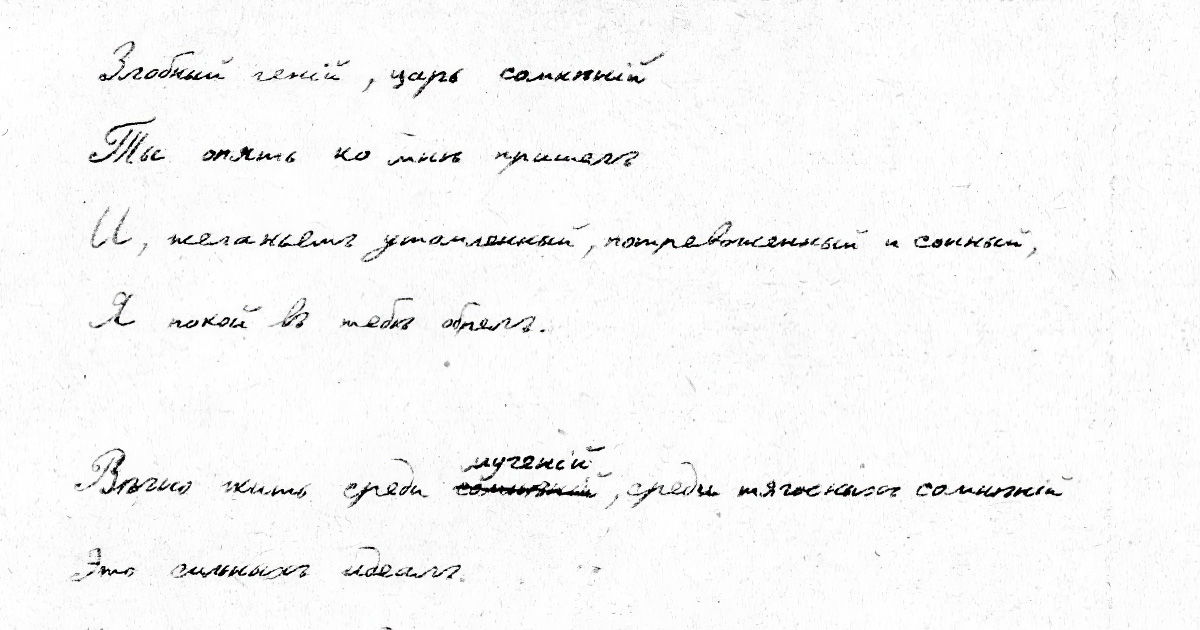 Злобный геній, царь сомнѣній
Ты опять ко мнѣ пришелъ
И, желаньемъ утомленный, потревоженный и сонный,
Я покой въ тебѣ обрелъ.
Вѣчно жить среди сомнѣній мученій, среди тягостныхъ сомнѣній
Это сильныхъ идеалъ